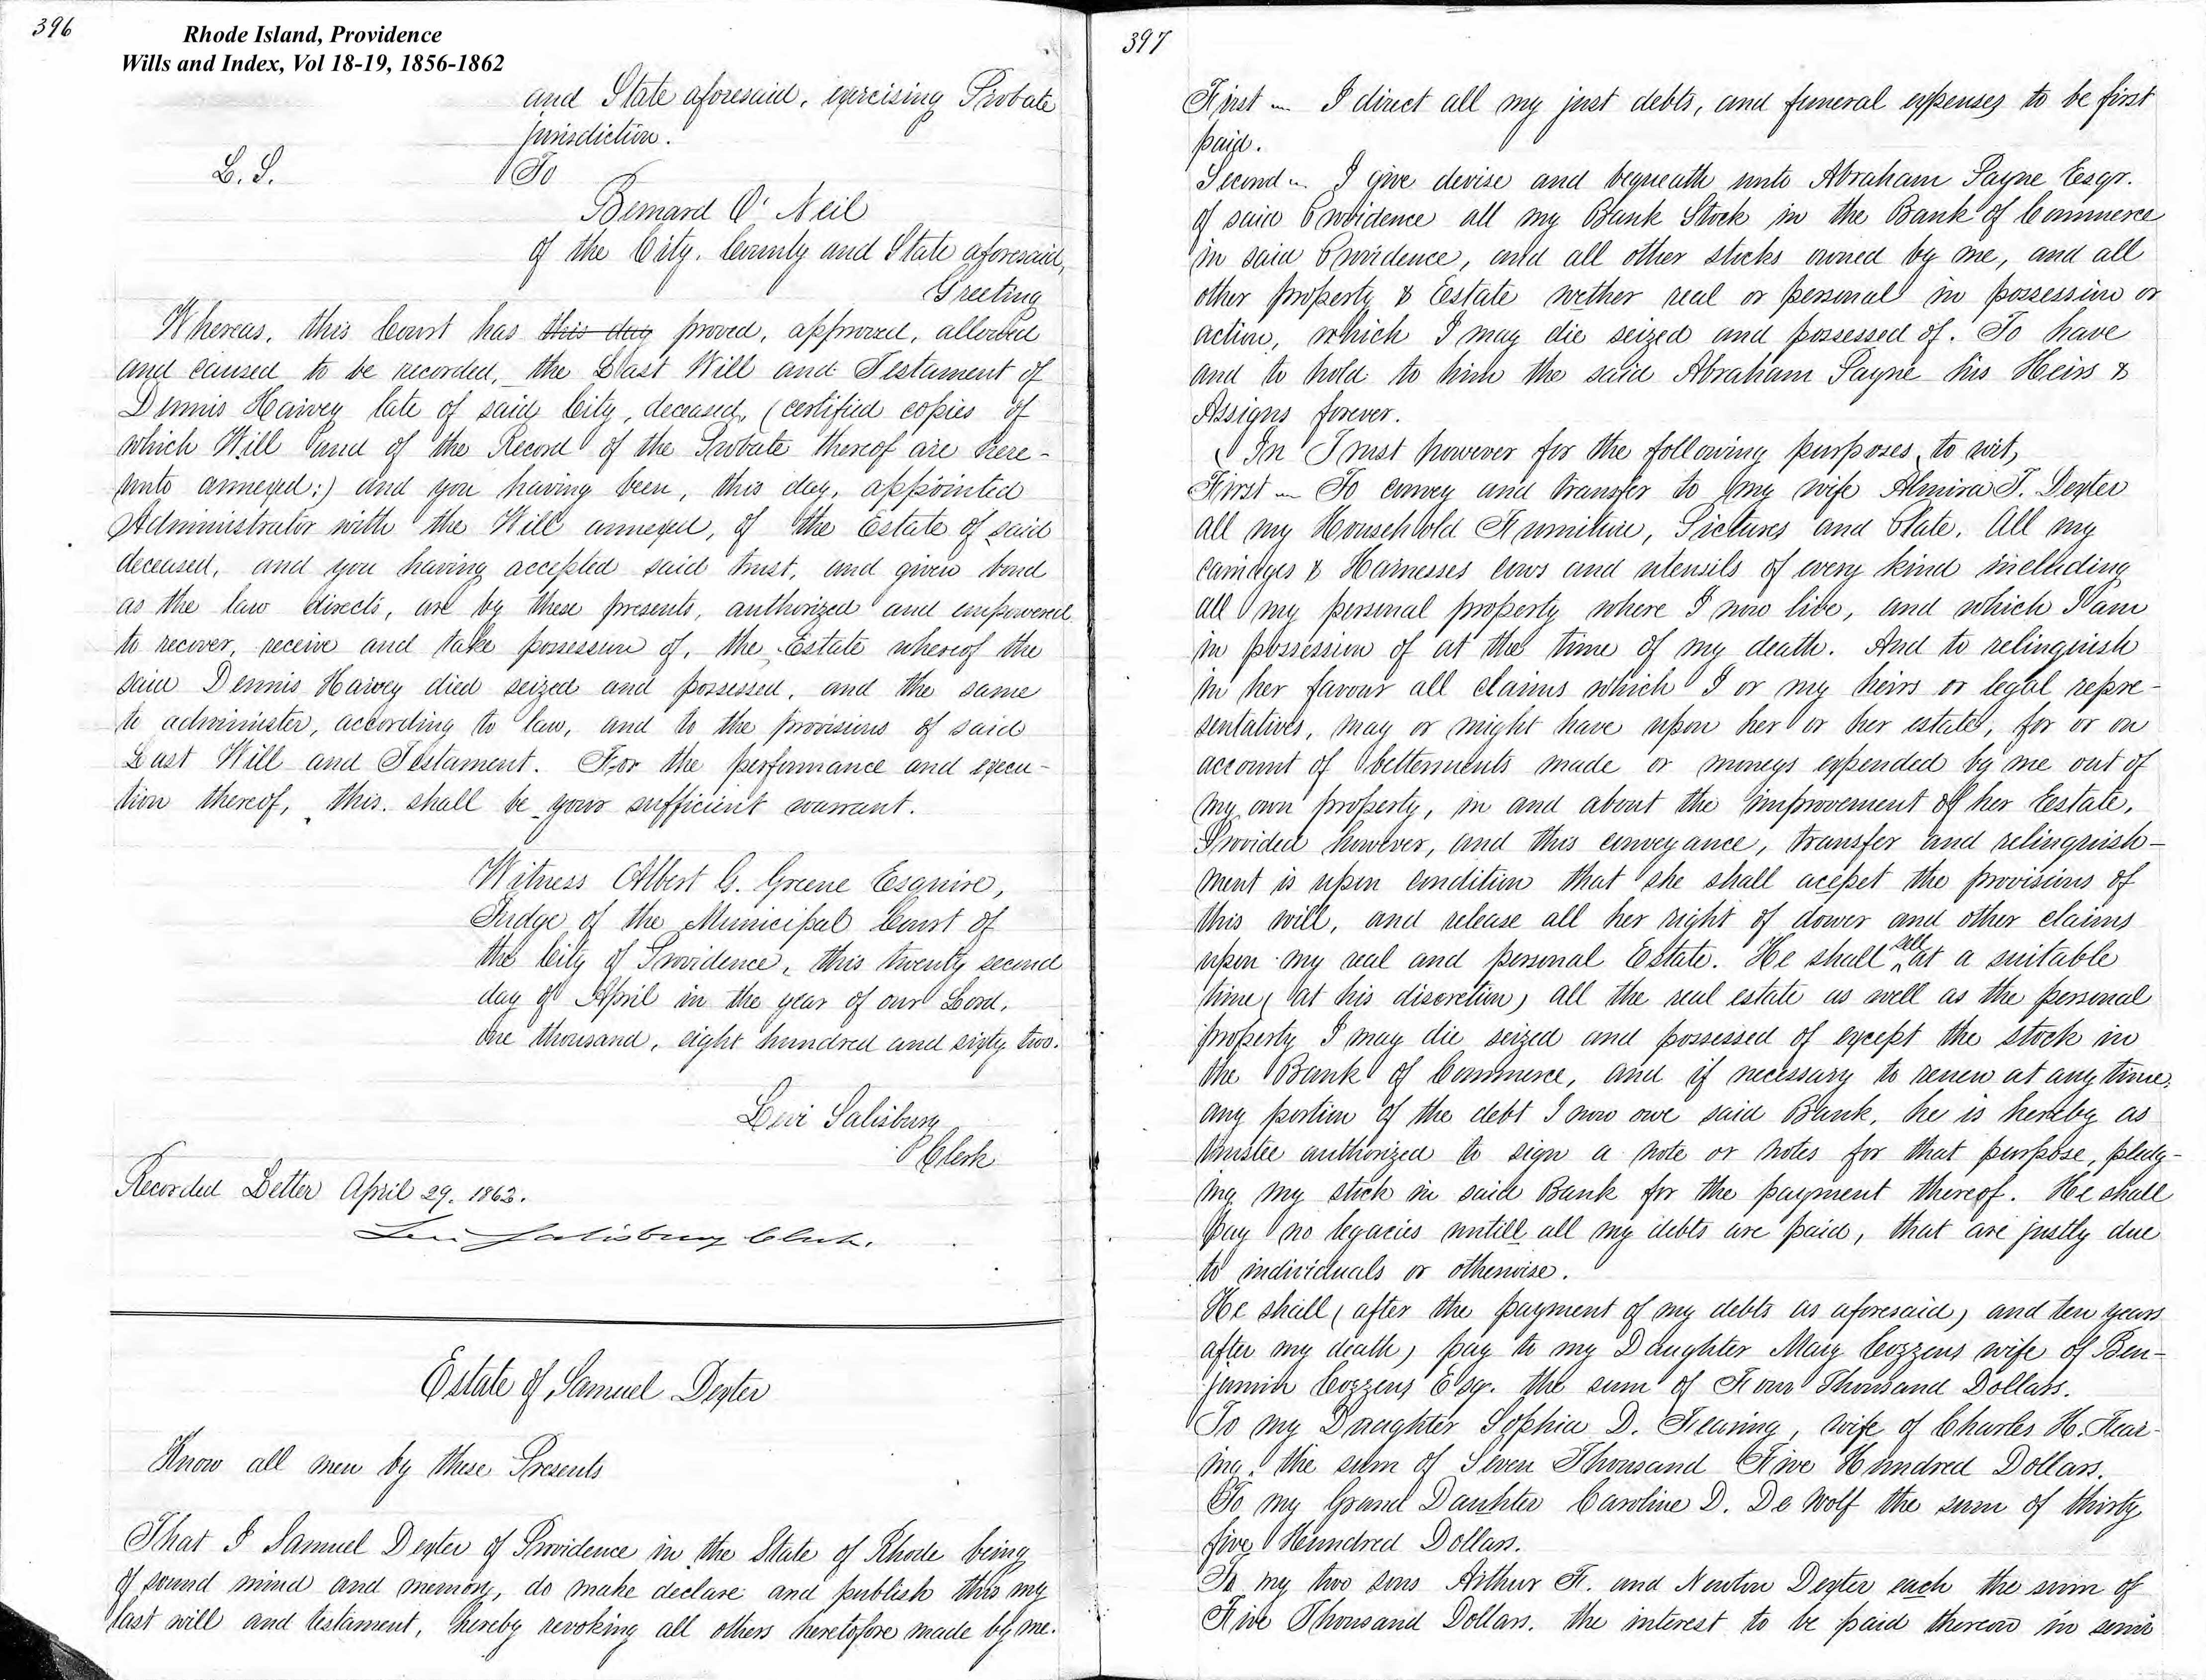 396
Rhode Island, Providence
Wills and Index, Vol 18-19, 1856-1862
and State aforesaid, exercising Probate
jurisdiction.
L. S.
To
Bernard O'Neil
of the City, County and State aforesaid,
Greeting
Whereas, this Court has this day proved, approved, allowed
and caused to be recorded, the Last Will and Testament of
Dennis Harvey late of said City, deceased, (certified copies of
which Will and of the Record of the Probate thereof are here-
unto annexed;) and you having been, this day, appointed
Administrator with the Will annexed, of the Estate of said
deceased, and you having accepted said trust, and given bond
as the law directs, are by these presents, authorized and empowered
to recover, receive and take possession of, the Estate whereof the
said Dennis Harvey died seized and possessed, and the same
to administer, according to law, and to the provisions of said
Last Will and Testament. For the performance and execu-
tion thereof, this shall be your sufficient warrant.
Witness Albert G. Greene Esquire,
Judge of the Municipal Court of
the City of Providence, this twenty second
day of April in the year of our Lord,
one thousand, eight hundred and sixty two.
Levi Salisbury
Clerk
Recorded Letter April 29. 1862.
Levi Salisbury Clerk.
Estate of Samuel Dexter
Know all men by these Presents
That I Samuel Dexter of Providence in the State of Rhode being
of sound mind and memory, do make declare and publish this my
last will and testament, hereby revoking all others heretofore made by me.
397
First - I direct all my just debts, and funeral expenses to be first
paid.
Second - I give devise and bequeath unto Abraham Payne Esqr.
of said Providence all my Bank Stock in the Bank of Commerce
in said Providence, and all other stocks owned by me, and all
other property & Eestate wether real or personal in possession or
action, which I may die seized and possessed of. To have
and to hold to him the said Abraham Payne his Heirs &
Assigns forever.
In Trust however for the following purposes, to wit,
First - To convey and transfer to my wife Almira T. Dexter
all my Household Furniture, Pictures and Plate. All my
carriages & Harnesses cows and utensils of every kind including
all my personal property where I now live, and which I am
in possession of at the time of my death. And to relinquish
in her favour all claims which I or my heirs or legal repre-
sentatives, may or might have upon her or her estate, for or on
account of betterments made or moneys expended by me out of
my own property, in and about the improvement of her Eestate,
Provided however, and this conveyance, transfer and relinquish-
ment is upon condition that she shall acepet the provisions of
this will, and release all her right of dower and other claims
upon my real and personal Estate. He shall sell at a suitable
time, (at his discretion) all the real estate as well as the personal
property I may die seized and possessed of except the stock in
the Bank of Commerce, and if necessary to renew at any time,
any portion of the debt I now owe said Bank, he is hereby as
trustee authorized to sign a note or notes for that purpose, pledg-
ing my stock in said Bank for the payment thereof. He shall
pay no legacies untill all my debts are paid, that are justly due
to individuals or otherwise.
He shall (after the payment of my debts as aforesaid) and ten years
after my death, pay to my Daughter Mary Cozzens wife of Ben-
jamin Cozzens Esqr. the sum of Four Thousand Dollars.
To my Daughter Sophia D. Fearing, wife of Charles H. Fear-
ing, the sum of Seven Thousand Five Hundred Dollars.
To my Grand Dauhter Caroline D. De Wolf the sum of thirty
five Hundred Dollars.
To my two sons Arthur F. and Newton Dexter each the sum of
Five Thousand Dollars. the interest to be paid thereon in semi